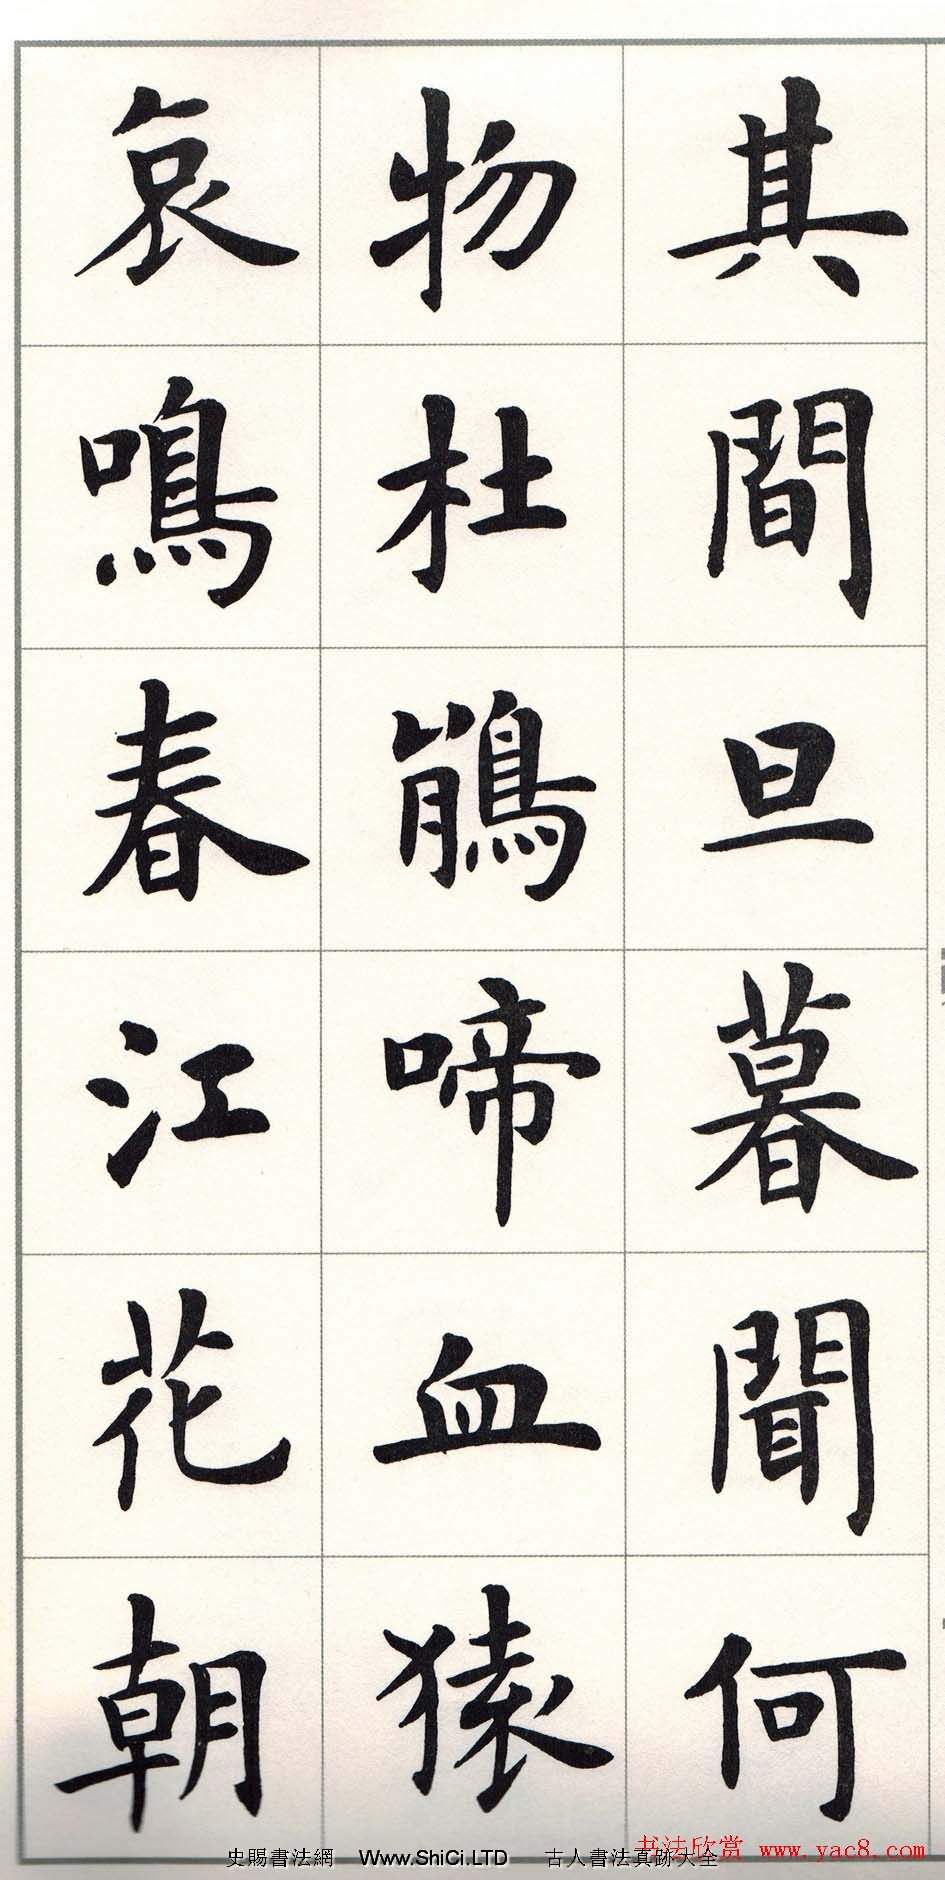 其間旦暮聞何
物杜鵑啼血猿
哀鳴春江花朝
书法欣赏 www.yac8.com
史賜書法網 Www.ShiCi.LTD 古人書法真跡大全